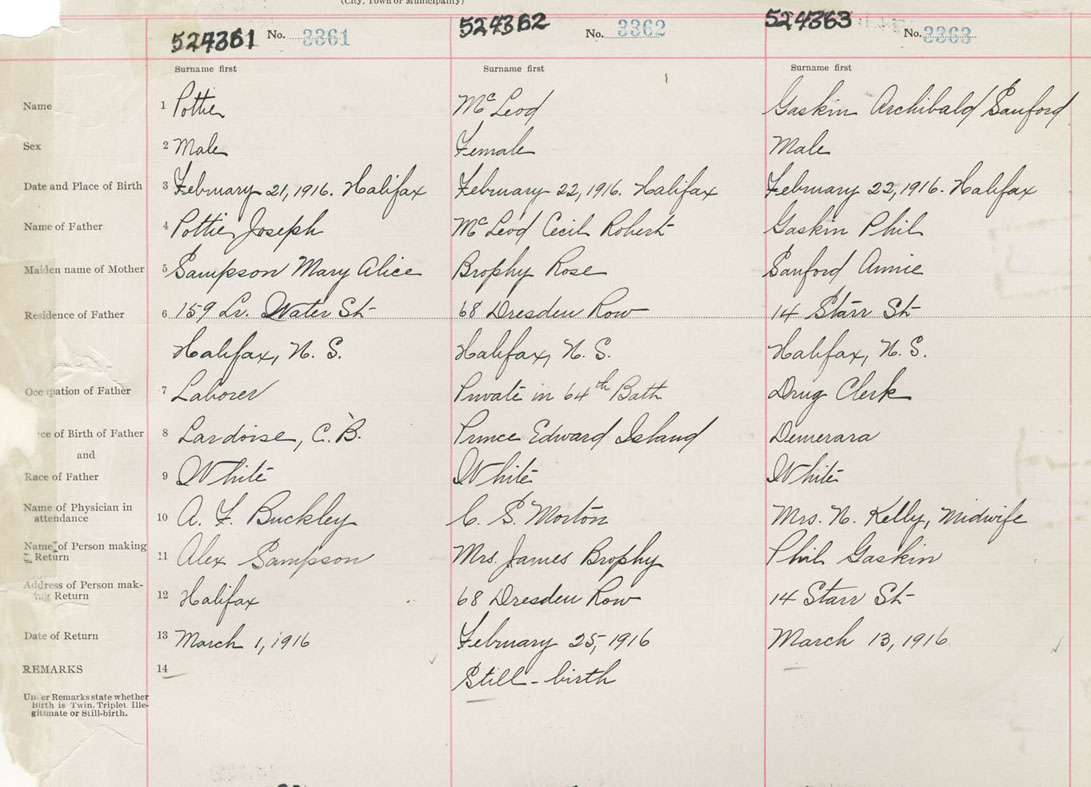 (City, Town or Municipality)
524361 No. 3361 524362 No. 3362 524363 No. 3363
Surname first Surname first Surname first
Name 1 Pottie McLeod Gaskin Archibald Sanford
Sex 2 Male Female Male
Date and Place of Birth 3 February 21, 1916. Halifax February 22, 1916. Halifax February 22, 1916. Halifax
Name of Father 4 Pottie, Joseph McLeod Cecil Robert Gaskin Phil
Maiden name of Mother 5 Sampson Mary Alice Brophy Rose Sanford Annie
Residence of Father 6 159 Lr. Water St 68 Dresden Row 14 Starr St
Halifax, N. S. Halifax, N. S. Halifax, N. S.
Occupation of Father 7 Laborer Private in 64th Batt Drug Clerk
ce of Birth of Father 8 Lardoise, C. B. Prince Edward Island Demerara
and
Race of Father 9 White White White
Name of Physician in
attendance 10 A. F. Buckley C. S. Morton Mrs. N. Kelly, Midwife
Name of Person making
Return 11 Alex Sampson Mrs. James Brophy Phil Gaskin
Address of Person mak-
ing Return 12 Halifax 68 Dresden Row 14 Starr St
Date of Return 13 March 1, 1916 February 25, 1916 March 13, 1916
REMARKS 14 Still-birth
Under Remarks state whether
Birth is Twin, Triplet Ille-
gitimate or Still-birth.